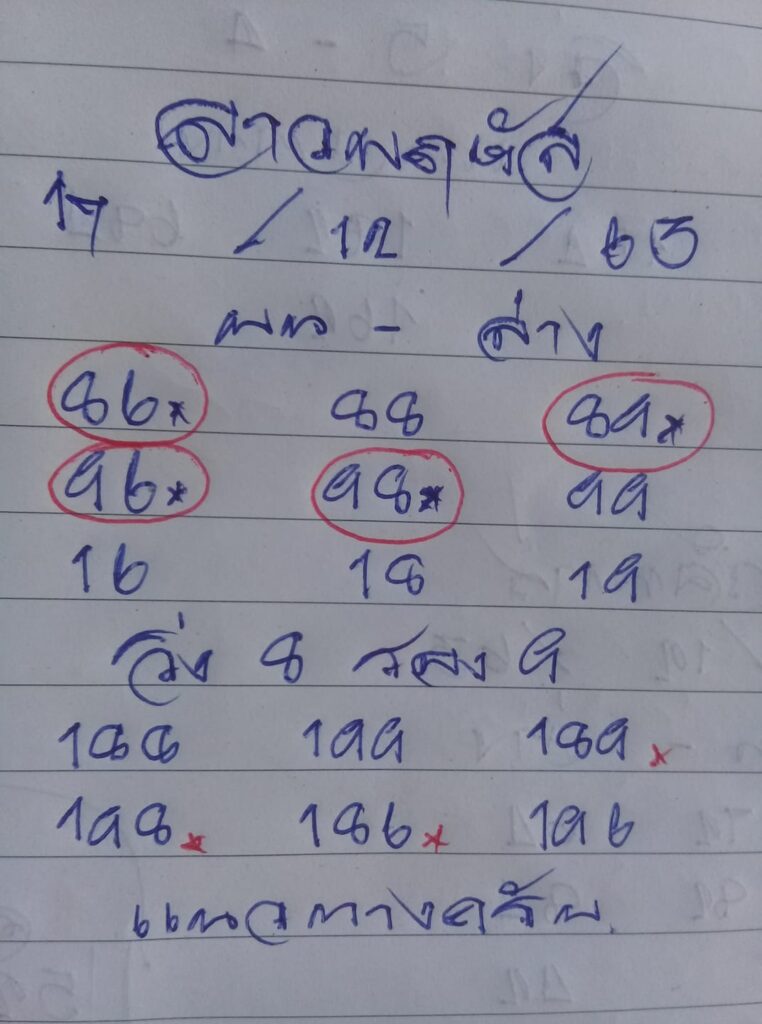 ลาวพฤหัส
17 / 12 / 63
บน - ล่าง
86* 88 89*
96* 98* 99
16 18 19
วิ่ง 8 รอง 9
188 199 189*
198* 186* 196
แนวทางครับ